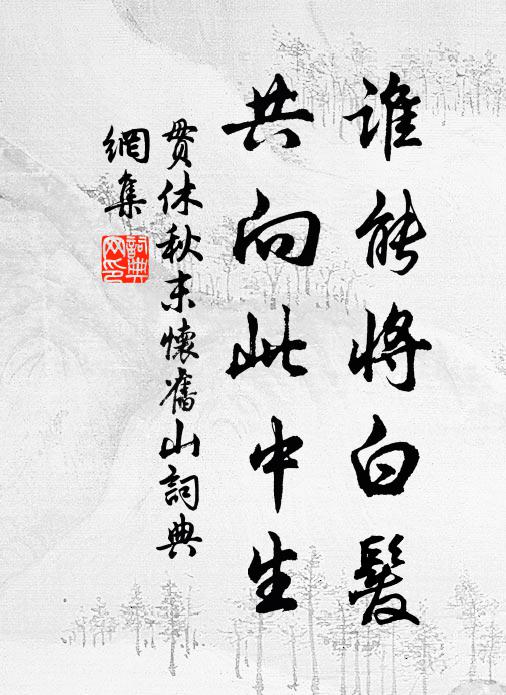 誰能將白髮
共向此中生
貫休秋末懷舊山詞典
網集
詞典
网印